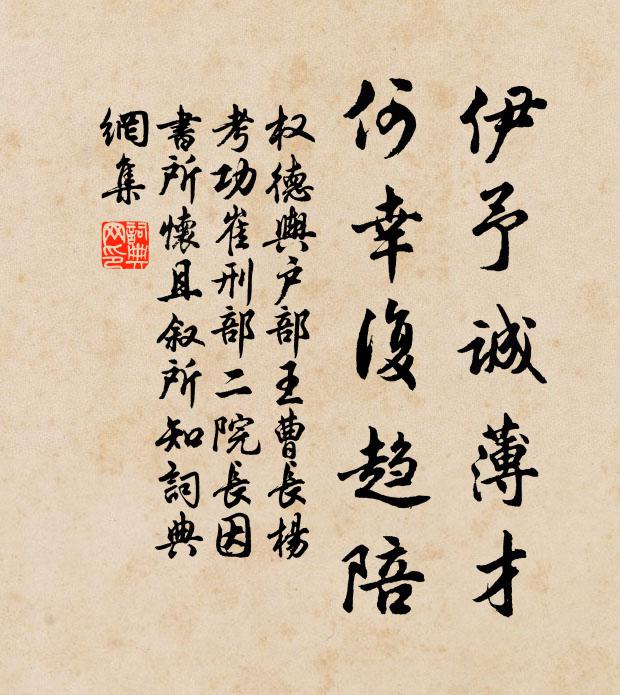 伊予诚薄才
何幸復趋陪
权德舆户部王曹長楊
考功崔刑部二院長因
書所懷且叙所知詞典
網集
詞典網印